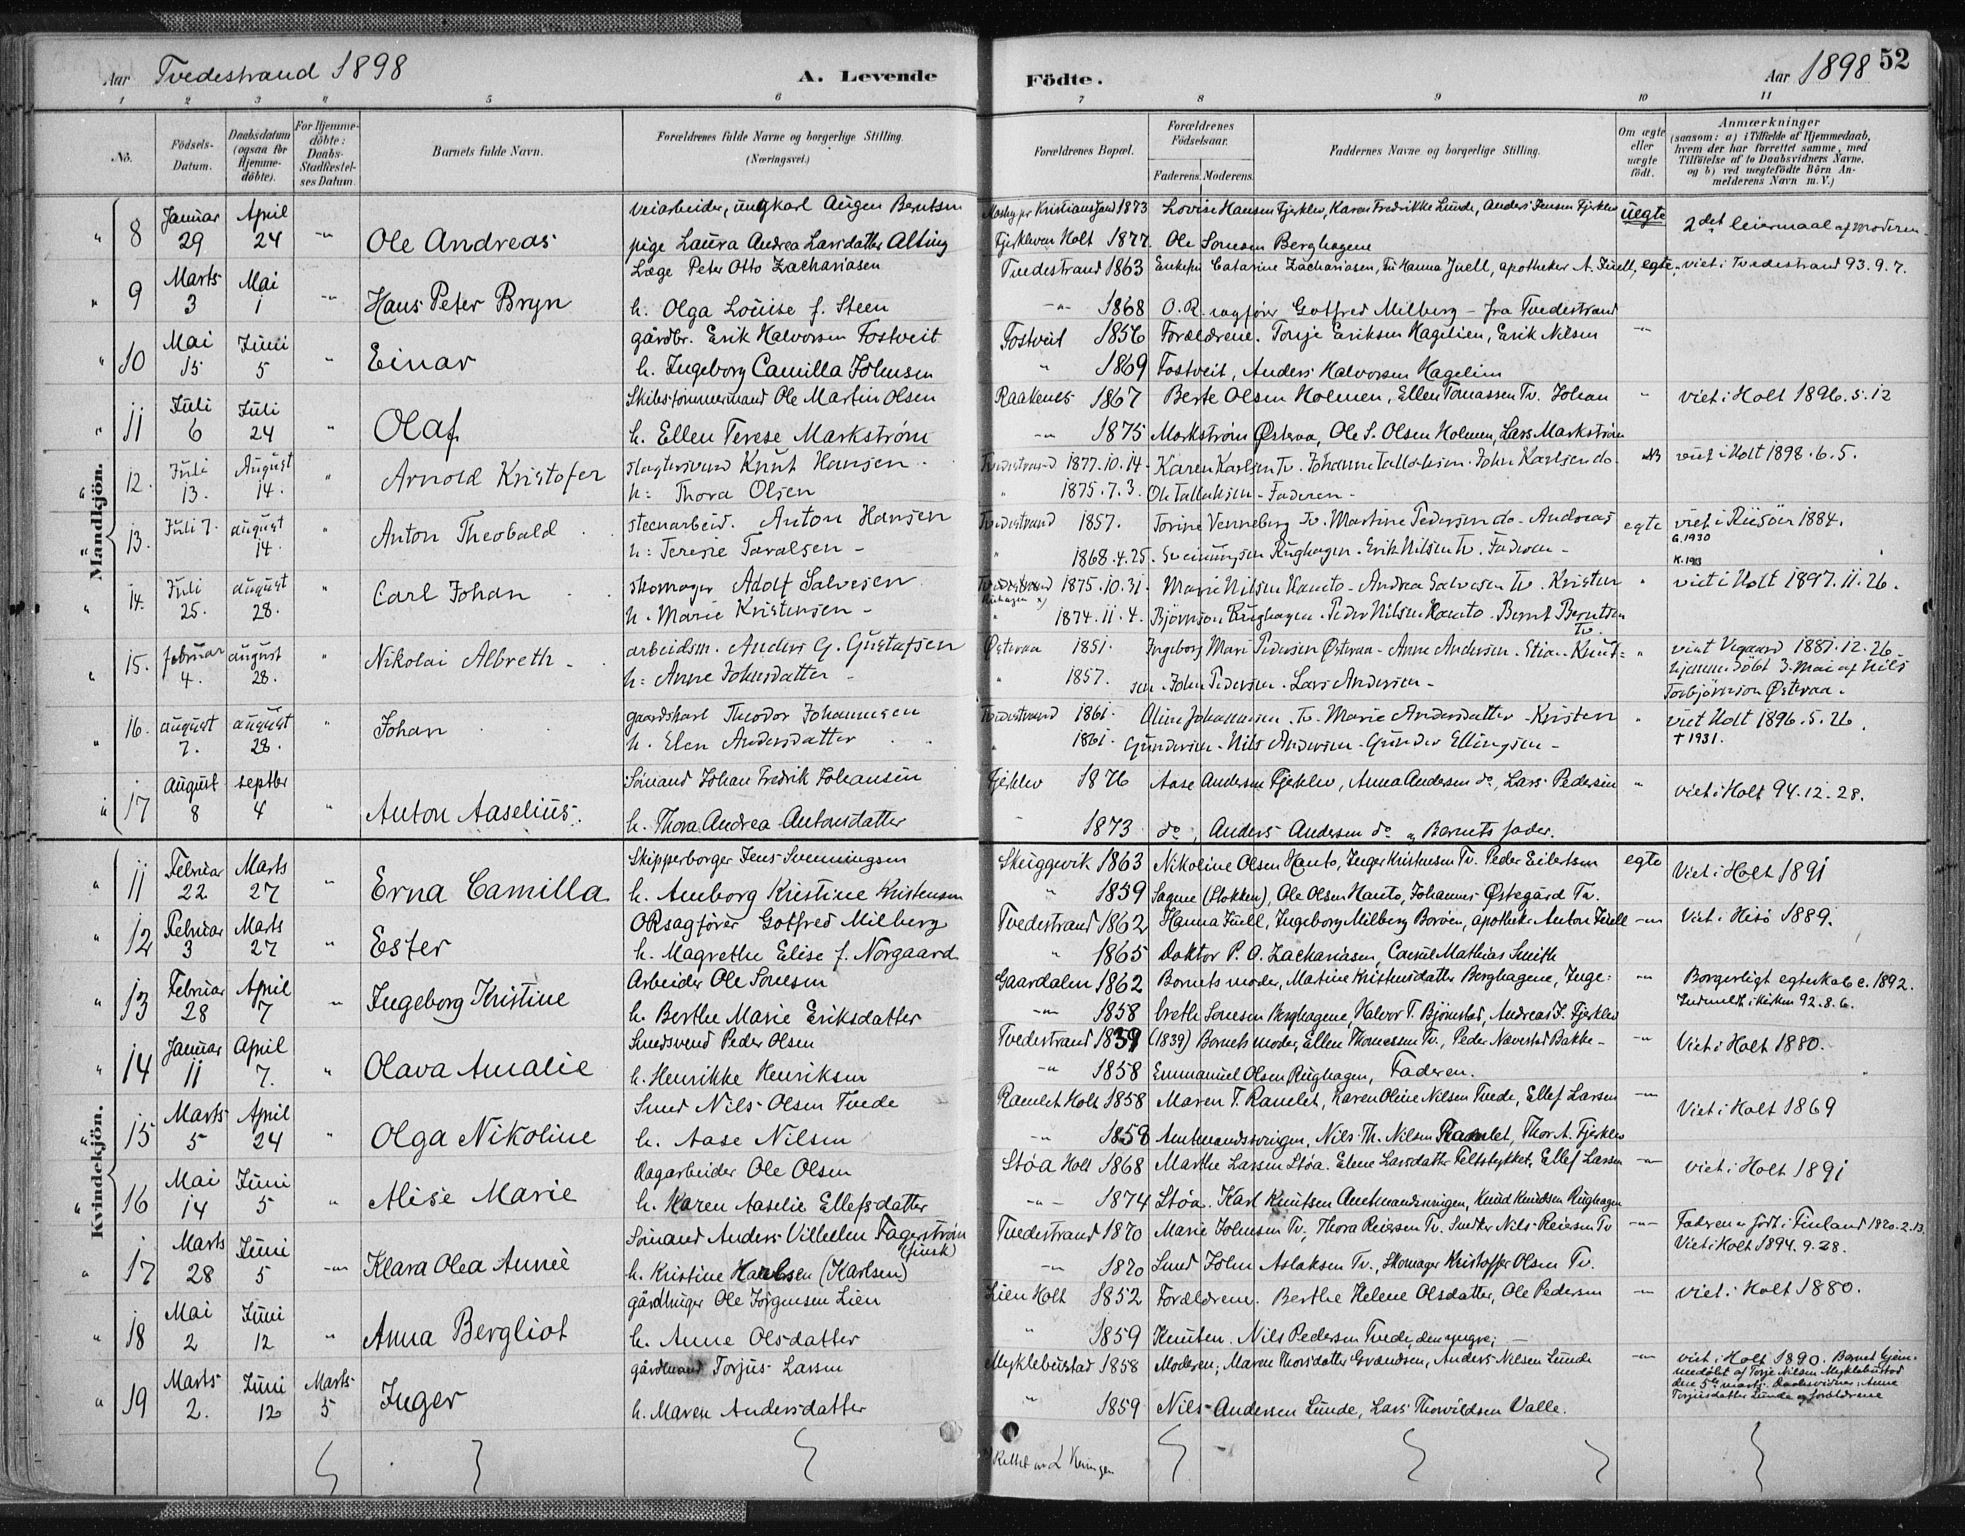 Aar Tvedestrand 1898 A. Levende Födte. Aar 1898 52
1 2 3 4 5 6 7 8 9 10 11
No. Födsels-Datum. Daabsdatum (ogsaa for Hjemme-döbte). For Hjemme-döbte: Daabs-Stadfæstel-ses Datum. Barnets fulde Navn. Forældrenes fulde Navne og borgerlige Stilling. (Næringsvei.) Forældrenes Bopæl. Forældrenes Födselsaar. Faderens. Moderens. Faddernes Navne og borgerlige Stilling. Om ægte eller uægte födt. Anmærkninger (saasom: a) i Tilfælde af Hjemmedaab, hvem der har forrettet samme, med Tilföielse af to Daabsvidners Navne, og b) ved uægtefödte Börn An-melderens Navn m. V.)
Mandkjön.
Januar April Veiarbeider, ungkarl Augen Berntsen Mosby pr Kristianssand 1873 Lovise Hansen Fjerklev, Karen Fredrikke Lunde, Anders Jensen Fjerklev uegte 2det leiermaal af moderen
8 29 24 Ole Andreas pige Laura Andrea Larsdatter Alting Fjerkleven Holt 1877 Ole Sonesen Berghagene
Marts Mai Læge Peter Otto Zachariasen Tvedestrand 1863 Enkefru Catarine Zachariasen, Fru Hanna Juell, apotheker A. Juell, egte viet i Tvedestrand 93.9.7.
9 3 1 Hans Peter Bryn h. Olga Louise f. Steen 1868 O.R. sagfører Gotfred Milberg - fra Tvedestrand
Mai Juni gårdbr. Erik Halvorsen Fostveit Fostveit 1856 Forældrene. Tonje Eriksen Hagelien, Erik Nilsen
10 15 5 Einar h. Ingeborg Camilla Johnsen 1869 Fostveit, Anders Halvorsen Hagelien
Juli Juli Skibstømmermand Ole Martin Olsen Raakenes 1867 Berte Olsen Holmen, Ellen Tomassen Tv. Johan viet i Holt 1896.5.12
11 6 24 Olaf h. Ellen Terese Markstrøm 1875 Markstrøm Østeraa, Ole S. Olsen Holmen, Lars Markstrøm
Juli August slagtersvend Knut Hansen Tvedestrand 1877.10.14 Karen Karlsen Tv. Johanne Tallaksen. John Karlsen do viet i Holt 1898.6.5.
12. 13. 14. Arnold Kristofer h: Thora Olsen 1875.7.3. Ole Tallaksen - Faderen -
Juli 7. august steenarbeid. Anton Hansen Tvedestrand 1857. Torine Venneberg Tv. Martine Pedersen do - Andreas egte viet i Riisøer 1884.
G. 1930
13. 14. Anton Theobald h: Teresie Tavalsen - 1868.4.25. Sveinungsen Rughagen - Erik Nilsen Tv. Faderen -
Juli august skomager Adolf Salvesen Tvedestrand 1875.10.31. Marie Nilsen Hanto - Andrea Salvesen Tv. Kristen K. 1913 viet i Holt 1897.11.26.
14. 25. 28. Carl Johan h. Marie Kristensen - 1874.11.4. Bjørnson Rughagen. Peder Nilsen Hanto. Bernt Berntsen Tv.
februar august arbeidsm. Anders G. Gustafsen Østeraa 1851. Ingeborg Mari Pedersen Østeraa - Anne Andersen - Stian Knut= viet Vegaard 1881.12.26.
15. 4. 28. Nikolai Albreth h: Anne Johnsdatter - 1857. sen - John Pedersen - Lars Andersen - hjemmedöbt 3. Mai af Nils Torbjörnson Østeraa.
august august gaardskarl Theodor Johannesen Tvedestrand 1861. Oline Johannesen - Tv. Marie Andersdatter - Kristen viet Holt 1896.5.26.
16. 7. 28. Johan h. Elen Andersdatter 1861. Gundersen - Nils Andersen - Gunder Ellingsen - † 1931.
August septbr Sömand Johan Fredrik Johansen Fjerklev 1876 Aase Andersen Fjerklev, Anna Andersen do, Lars Pedersen viet i Holt 94.12.28.
17 8 4 Anton Aaselius. h. Thora Andrea Antonsdatter 1873 do, Anders Andersen do og Barnets fader.
Kvindekjön.
Februar Marts Skipperborger Jens Svenningsen Skuggevik 1863 Nikoline Olsen Hanto, Inger Kristensen Tv. Peder Eilertsen egte Viet i Holt 1891
11 22 27 Erna Camilla h. Amborg Kristine Kristensen 1859 Sagene (Stokken), Ole Olsen Hanto, Johannes Østegård Tv.
Februar Marts ORsagfører Gotfred Milberg Tvedestrand 1862 Hanna Juell, Ingeborg Milberg Borøen, apotheker Anton Juell Viet i Hisö 1889.
12 3 27 Ester h. Magrethe Elise f. Norgaard 1865 Doktor P. O. Zachariasen, Consul Mathias Smith
Februar April Arbeider Ole Sonesen Gaardalen 1862 Barnets moder, Matine Kristensdatter Berghagene, Inge= Borgerligt egteskab c. 1892.
13 28 7 Ingeborg Kristine h. Berthe Marie Eriksdatter 1858 breth Sonesen Berghagene, Halvor T. Bjönstad, Andreas J. Fjerklev Indmeldt i kirken 92.8.6.
Januar April Smedsvend Peder Olsen Tvedestrand 1839 (1839) Barnets moder, Ellen Thomesen Tv., Peder Næverstad Bakke - Viet i Holt 1880.
14 11 7. Olava Amalie h. Henrikke Henriksen 1858 Emmanuel Olsen Rughagen, Faderen.
Marts April Smed Nils Olsen Tvede Ramlet Holt 1858 Maren T. Ramlet, Karen Oline Nilsen Tvede, Ellef Larsen Viet i Holt 1869
15 5 24 Olga Nikoline h. Aase Nilsen 1858 Amtmandssvingen, Nils Th. Nilsen Ramlet, Thor A. Fjerklev
Mai Juni Dagarbeider Ole Olsen Støa Holt 1868 Marthe Larsen Støa. Elene Larsdatter Feltstykket, Ellef Larsen viet i Holt 1891
16 14 5 Alise Marie h. Karen Aaselie Ellefsdatter 1874 Støa. Karl Knutsen Amtmandsvingen, Knud Knudsen Rughagen
Marts Juni Sömand Anders Vilhelm Fagerström (finsk) Tvedestrand 1870 Marie Johnsen Tv., Thora Reiersen Tv. Snedker Nils Reiersen Tv Faderen er født i Finland 1870.2.13.
17 28 5 Klara Olea Annie h. Kristine (Karlsen) 1870 Smed John Aslaksen Tv., Skomager Kristoffer Olsen Tv. Viet i Holt 1894.9.28.
Mai Juni gårdbruger Ole Jørgensen Lien Lien Holt 1852 Forældrene. Berthe Helene Olsdatter, Ole Pedersen viet i Holt 1880.
18 2 12 Anna Bergliot h. Anne Olsdatter 1859 Knuten. Nils Pedersen Tvede, den yngre; -
Marts Juni Marts gårdmand Torjus Larsen Myklebustad 1858 Moderen, Maren Thorsdatter Grændsen, Anders Nilsen Lunde viet i Holt 1890. Barnet hjem-medøbt af Torje Nilsen Myklebustad
19 2. 12 5 Inger h. Maren Andersdatter 1859 Nils Andersen Lunde, Lars Thorvildsen Valle. den 5te marts. Daabsvidner: Anne Torjusdatter Lunde og forældrene